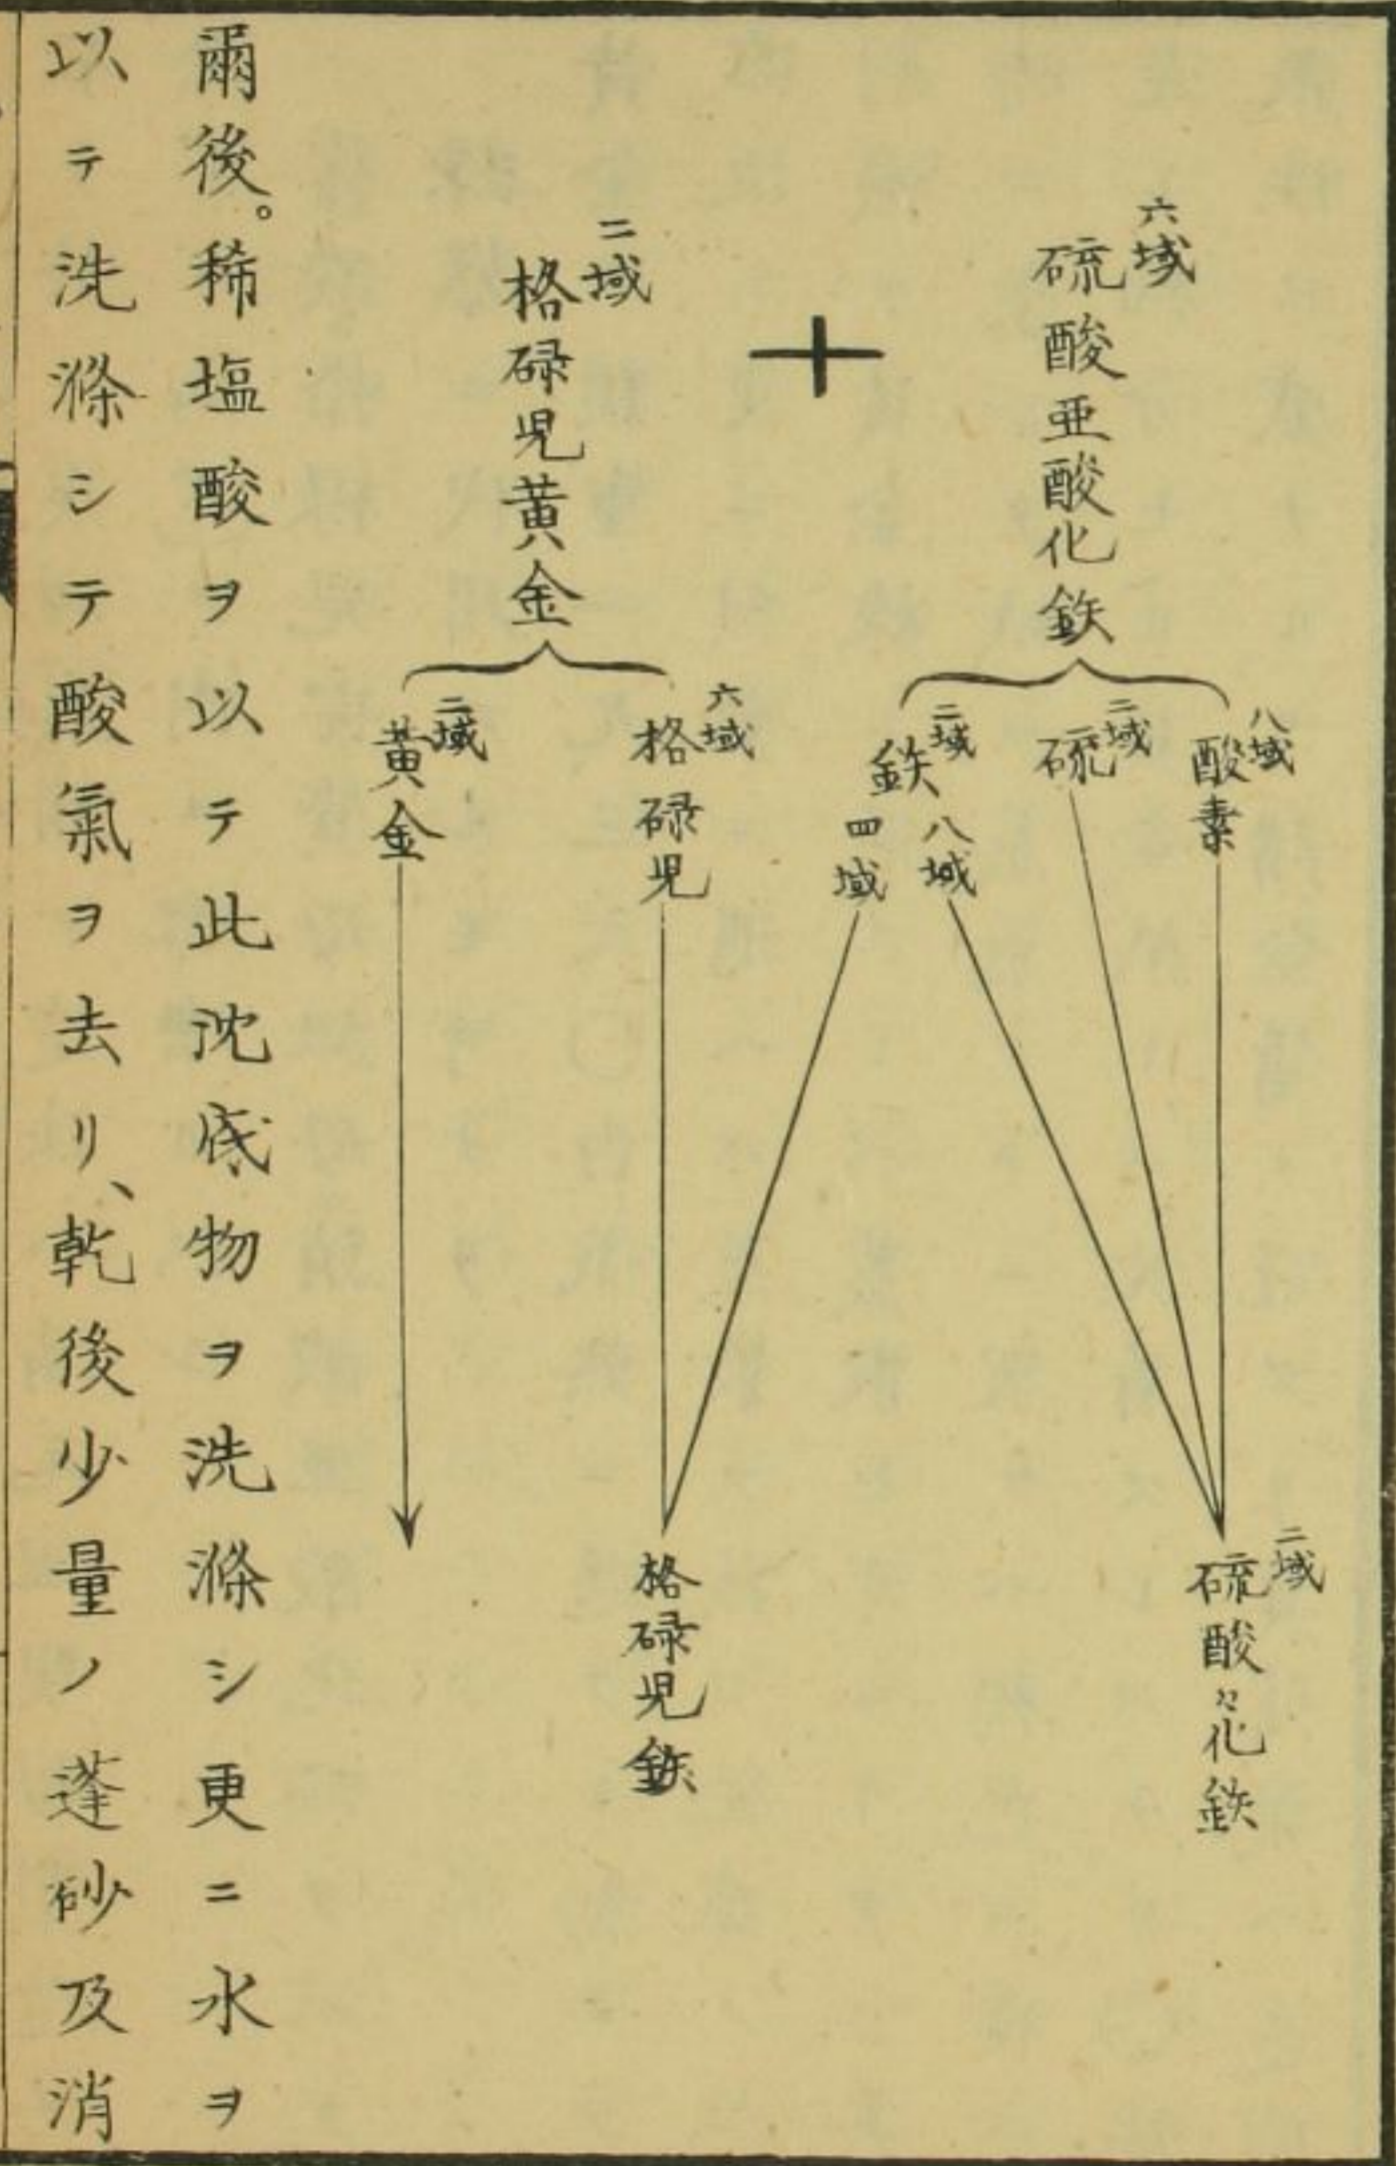 六域
硫酸亜酸化鉄
八域
酸素
二域
硫
二域
鉄
八域
四域
二域
硫酸々化鉄
+
二域
格碌児黄金
六域
格碌児
二域
黄金
格碌児鉄
爾後。稀塩酸ヲ以テ此沈底物ヲ洗滌シ更ニ水ヲ
以テ洗滌シテ酸氣ヲ去リ、乾後少量ノ蓬砂及消